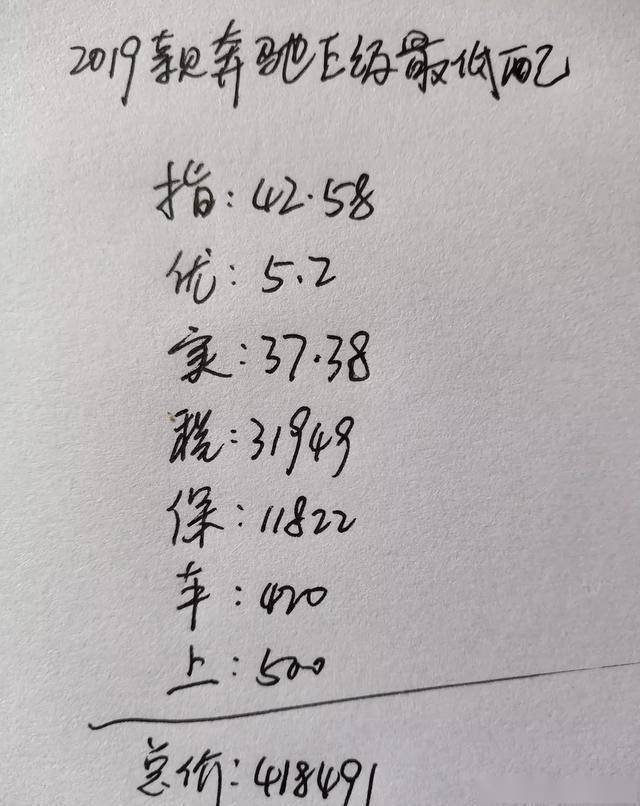 2019款奔驰E级最低配
指:42.58
优:5.2
实:37.38
税:31949
保:11822
车:420
上:500
总价:418491